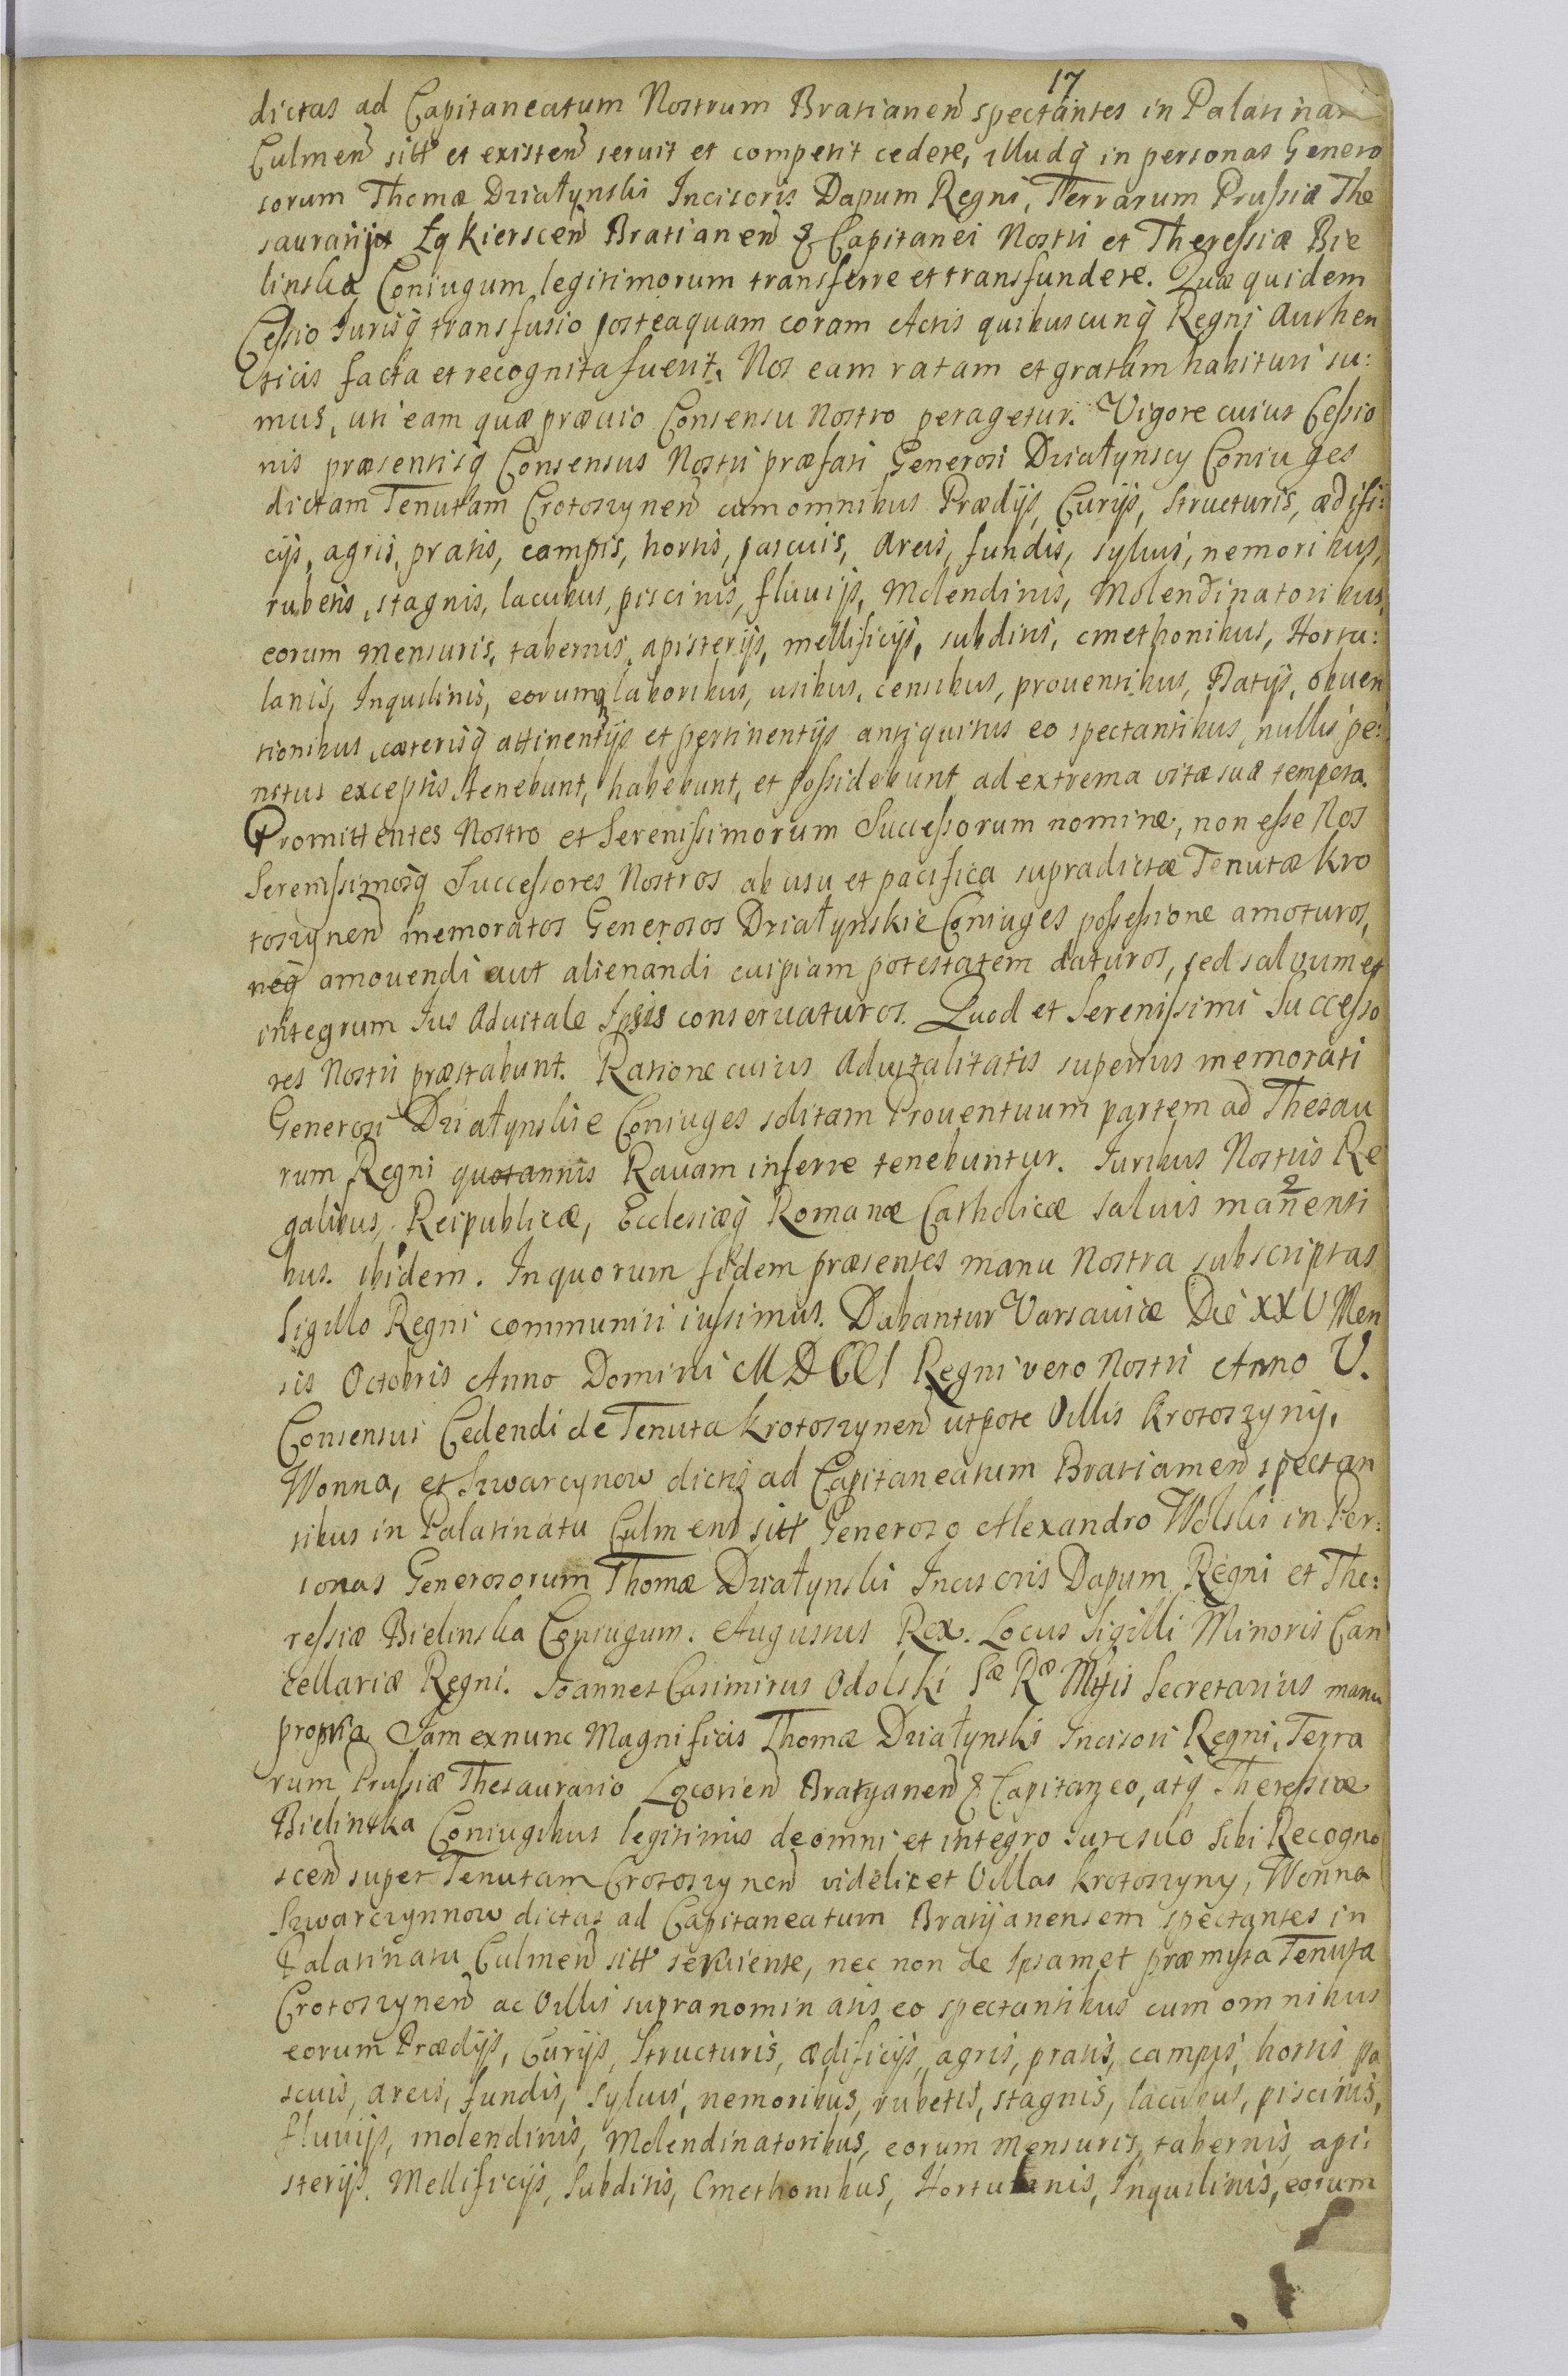 17
dictas ad Capitaneatum Nostrum Bratianen̄ spectantes in Palatina
Culmen̄ sitt et existen̄ seruit et competit cedere, illudq̄ in personas Genero
sorum Thomæ Działynski Incisoris Dapum Regni, Terrarum Prussiæ The
saurarij Łąkierscen̄ Bratianen̄ & Capitanei Nostri et Theressiæ Bie
linska Coniugum legitimorum transferre et transfundere. Quæ quidem
Cessio Jurisq̄ transfusio posteaquam coram Actis quibuscunq̄ Regni Authen
ticis facta et recognita fuerit, Nos eam ratam et gratam habituri su:
mus, uti eam quæ præuio Consensu Nostro peragetur. Vigore cuius Cessio
nis præsentisq̄ Consensus Nostri præfati Generosi Działynscy Coniuges
dictam Tenutam Crotoszynen̄ cum omnibus Prædijs, Curijs, Structuris, ædifi:
cijs, agris, pratis, campis, hortis, pascuis, Areis, fundis, syluis, nemoribus,
rubetis, stagnis, lacubus, piscinis, fluuijs, Molendinis, Molendinatoribus,
eorum Mensuris, tabernis, apisterijs, mellificijs, subditis, cmethonibus, Hortu:
lanis, Inquilinis, eorumq̄ laboribus, usibus, censibus, prouentibus, Datijs, obuen
tionibus, cæterisq̄ attinentijs et pertinentijs antiquitus eo spectantibus, nullis pe:
nitus exceptis tenebunt, habebunt, et possidebunt ad extrema vitæ suæ tempora.
Promittentes Nostro et Serenissimorum Successorum nomine, non esse Nos
Serenissimosq̄ Successores Nostros ab usu et pacifica supradictæ Tenutæ Kro
toszynen̄ memoratos Generosos Działynskie Coniuges possessione amoturos,
neq̄ amouendi aut alienandi cuipiam potestatem daturos, sed saluum et
integrum Jus Aduitale Ipsis conseruaturos. Quod et Serenissimi Successo
res Nostri præstabunt. Ratione cuius Aduitalitatis superius memorati
Generosi Działynskie Coniuges solitam Prouentuum partem ad Thesau
rum Regni quotannis Rauam inferre tenebuntur. Juribus Nostris Re
galibus, Reipublicæ, Ecclesiæq̄ Romanæ Catholicæ saluis manenti
bus. ibidem. In quorum fidem præsentes manu Nostra subscriptas
Sigillo Regni communiri iussimus. Dabantur Varsauiæ Die XXV Men
sis Octobris Anno Domini MDCCI Regni vero Nostri Anno V.
Consensus Cedendi de Tenuta Krotoszynen̄ utpote Villis Krotoszyny,
Wonna, et Szwarcynow dictis ad Capitaneatum Bratiamen̄ spectan
tibus in Palatinatu Culmen̄ sitt Generoso Alexandro Wolski in Per:
sonas Generosorum Thomæ Działynski Incisoris Dapum Regni et The:
ressiæ Bielinska Coniugum. Augustus Rex. Locus Sigilli Minoris Can
cellariæ Regni. Joannes Casimirus Odolski Sæ Ræ Mtis Secretarius manu
propria Jam exnunc Magnificis Thomæ Działynski Incisori Regni, Terra
rum Prussiæ Thesaurario Lqcorien̄ Bratyanen̄ & Capitaneo, atq̄ Theressiæ
Bielinska Coniugibus legitimis de omni et integro iure suo Sibi Recogno
scen̄ super Tenutam Crotoszynen̄ videlicet Villas Krotoszyny, Wonna
Szwarczynnow dictas ad Capitaneatum Bratijanensem spectantes in
Palatinatu Culmen̄ sitt seruiente, nec non de Ipsamet præmissa Tenuta
Crotoszynen̄ ac Villis supranominatis eo spectantibus cum omnibus
eorum Prædijs, Curijs, Structuris, ædificijs, agris, pratis, campis, hortis pa
scuis, areis, fundis, Syluis, nemoribus, rubetis, stagnis, lacubus, piscinis,
fluuijs, molendinis, Molendinatoribus, eorum Mensuris, tabernis, api:
sterijs, Mellificijs, Subditis, Cmethonibus, Hortulanis, Inquilinis, eorum